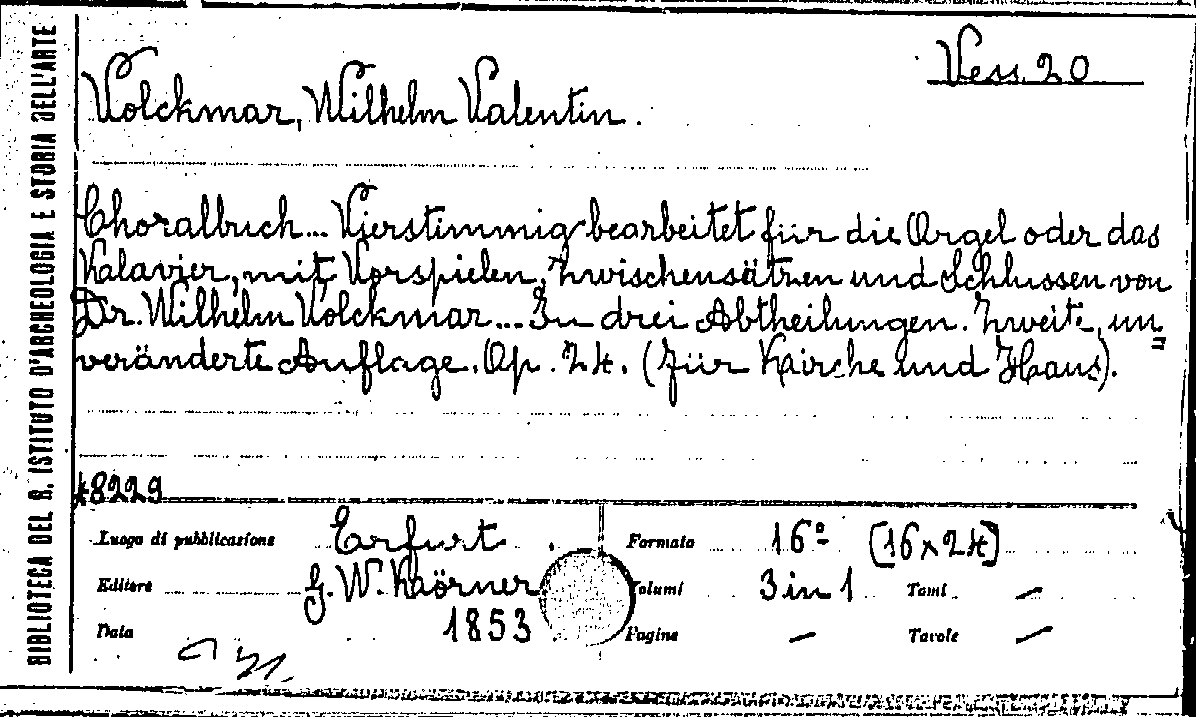 Vess. 20
BIBLIOTECA DEL R. ISTITUTO D'ARCHEOLOGIA E STORIA DELL'ARTE
Volckmar, Wilhelm Valentin.
Choralbuch... Vierstimmig bearbeitet für die Orgel oder das
Kalavier, mit Vorspielen, Zwischensätzen und Schlussen von
Dr. Wilhelm Volckmar... In drei Abtheilungen. Zweite, un=
veränderte Auflage. Op. 24. (Für Kirche und Haus).
48229
Luogo di pubblicazione Erfurt. Formato 16º (16x24)
Editore G. W. Körner Volumi 3 in 1 Tomi –
Data 1853 Pagine – Tavole –